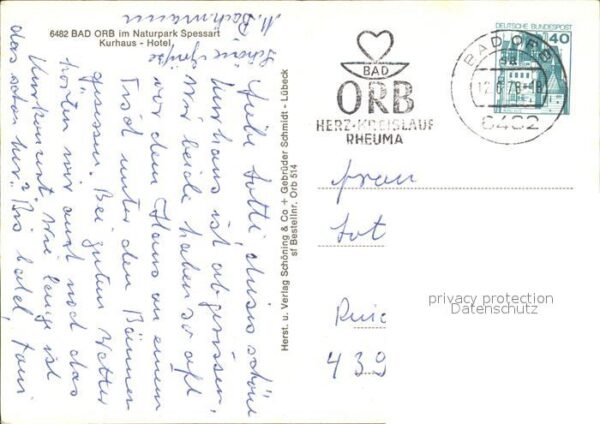 6482 BAD ORB im Naturpark Spessart
Kurhaus - Hotel
Liebe Lotti, dieses schöne
Kurhaus ist abgerissen,
wir beide haben so oft
vor dem Haus an einem
Tisch unter den Bäumen
gesessen. Bei gutem Wetter
hörten wir auch noch das
Kurkonzert. Wie lange ist
das schon her? Bis bald,
Schöne Grüße
M. Bachmann
Herst. u. Verlag Schöning & Co + Gebrüder Schmidt - Lübeck
sf Bestellnr. Orb 514
BAD
ORB
HERZ-KREISLAUF
RHEUMA
BAD ORB
sa
12.6.78-18
6482
DEUTSCHE BUNDESPOST
40
Frau
Lot
439
privacy protection
Datenschutz